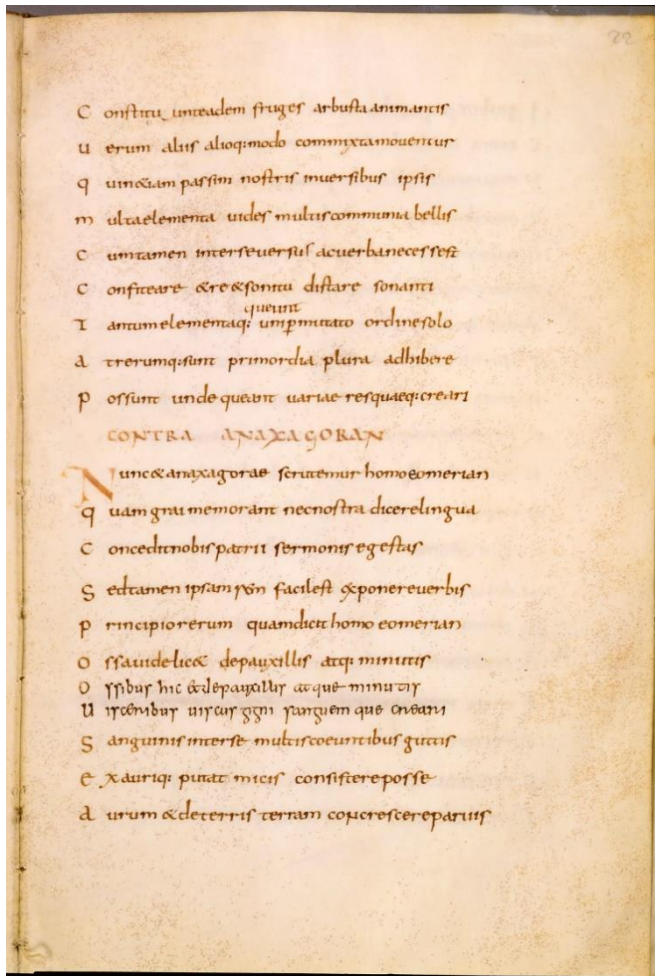 22
Constitu unteadem fruges arbusta animantis
uerum aliis alioq:modo commixtamouentur
quin&iam passim nostris inuersibus ipsis
multaelementa uides multiscommunia bellis
cumtamen interseuersus acuerbanecessest
confiteare &re&sonitu distare sonanti
queunt
Tantumelementaq: unipermutato ordinesolo
atrerumq:sunt primordia plura adhibere
possunt undequeant uariae resquaeq:creari
CONTRA ANAXAGORAN
Nunc&anaxagorae scrutemur homoeomerian
quamgraimemorant necnostra dicerelingua
Conceditnobispatrii sermonisegestas
Sedtamen ipsam rem facilest exponereuerbis
Principiorerum quamdicit homoeomerian
Ossauidelic& depauxillis atq: minutis
Ossibus hic &depauxillis atque minutis
Uisceribus uiscus gigni sanguem que creari
Sanguinisinterse multiscoeuntibus guttis
exauriq: putat micis consistereposse
Aurum &deterris terram concrescereparuis